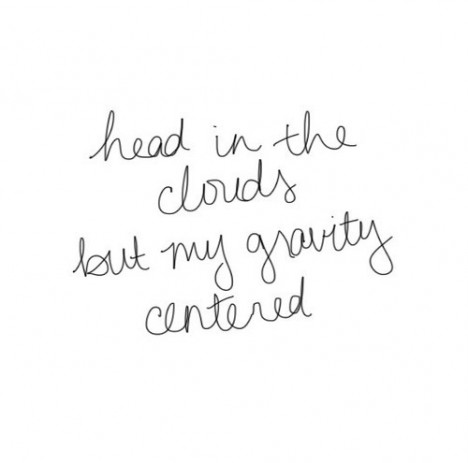 head in the
clouds
but my gravity
centered